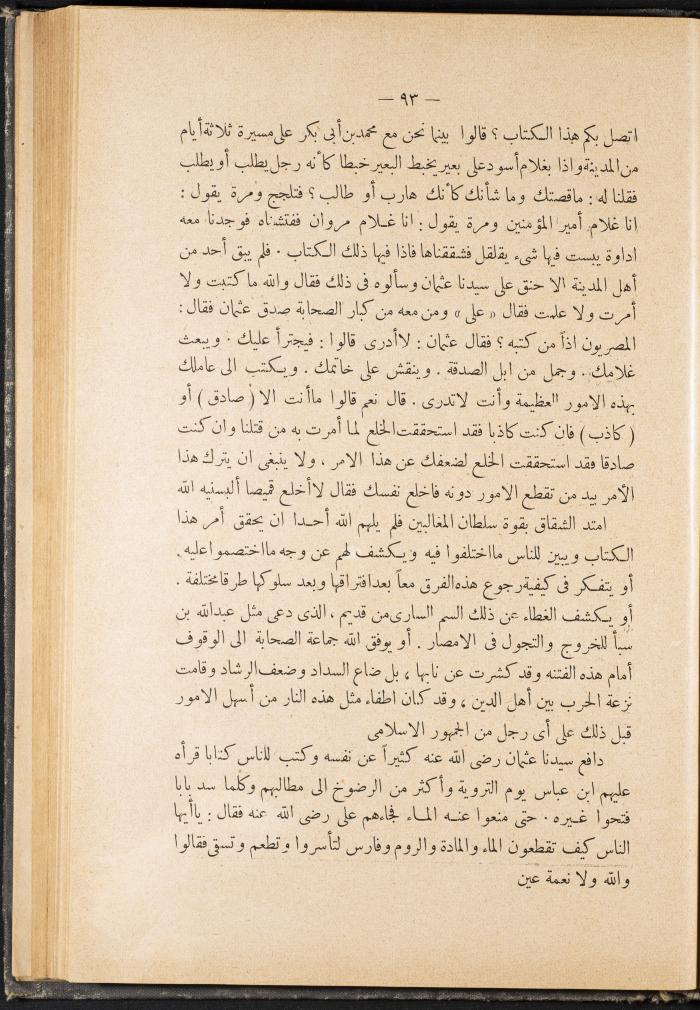 — ٩٣ —
اتصل بكم هذا الكتاب ؟ قالوا بينما نحن مع محمد بن أبى بكر على مسيرة ثلاثة أيام
من المدينة واذا بغلام أسود على بعير يخبط البعير خبطا كأنه رجل يطلب أو يطلب
فقلنا له : ماقصتك وما شأنك كأنك هارب أو طالب ؟ فتلجج ومرة يقول :
انا غلام أمير المؤمنين ومرة يقول : انا غلام مروان ففتشناه فوجدنا معه
اداوة يبست فيها شىء يقلقل فشققناها فاذا فيها ذلك الكتاب . فلم يبق أحد من
أهل المدينة الا حنق على سيدنا عثمان وسألوه فى ذلك فقال والله ما كتبت ولا
أمرت ولا علمت فقال « على » ومن معه من كبار الصحابة صدق عثمان فقال :
المصريون اذاً من كتبه ؟ فقال عثمان : لاأدرى قالوا : فيجترأ عليك . ويبعث
غلامك . وجمل من ابل الصدقة . وينقش على خاتمك . ويكتب الى عاملك
بهذه الامور العظيمة وأنت لاتدرى . قال نعم قالوا ماأنت الا ( صادق ) أو
( كاذب ) فان كنت كاذبا فقد استحققت الخلع لما أمرت به من قتلنا وان كنت
صادقا فقد استحققت الخلع لضعفك عن هذا الامر ، ولا ينبغى ان يترك هذا
الأمر بيد من تقطع الامور دونه فاخلع نفسك فقال لاأخلع قميصا ألبسنيه الله
امتد الشقاق بقوة سلطان المغالبين فلم يلهم الله أحدا ان يحقق أمر هذا
الكتاب ويبين للناس مااختلفوا فيه ويكشف لهم عن وجه مااختصموا عليه .
أو يتفكر فى كيفية رجوع هذه الفرق معاً بعد افتراقها وبعد سلوكها طرقا مختلفة .
أو يكشف الغطاء عن ذلك السم السارى من قديم ، الذى دعى مثل عبدالله بن
سبأ للخروج والتجول فى الامصار . أو يوفق الله جماعة الصحابة الى الوقوف
أمام هذه الفتنه وقد كشرت عن نابها ، بل ضاع السداد وضعف الرشاد وقامت
نزعة الحرب بين أهل الدين ، وقد كان اطفاء مثل هذه النار من أسهل الامور
قبل ذلك على أى رجل من الجمهور الاسلامى
دافع سيدنا عثمان رضى الله عنه كثيراً عن نفسه وكتب للناس كتابا قرأه
عليهم ابن عباس يوم التروية وأكثر من الرضوخ الى مطالبهم وكلما سد بابا
فتحوا غيره . حتى منعوا عنه الماء فجاءهم على رضى الله عنه فقال : ياأيها
الناس كيف تقطعون الماء والمادة والروم وفارس لتأسروا وتطعم وتسقى فقالوا
والله ولا نعمة عين